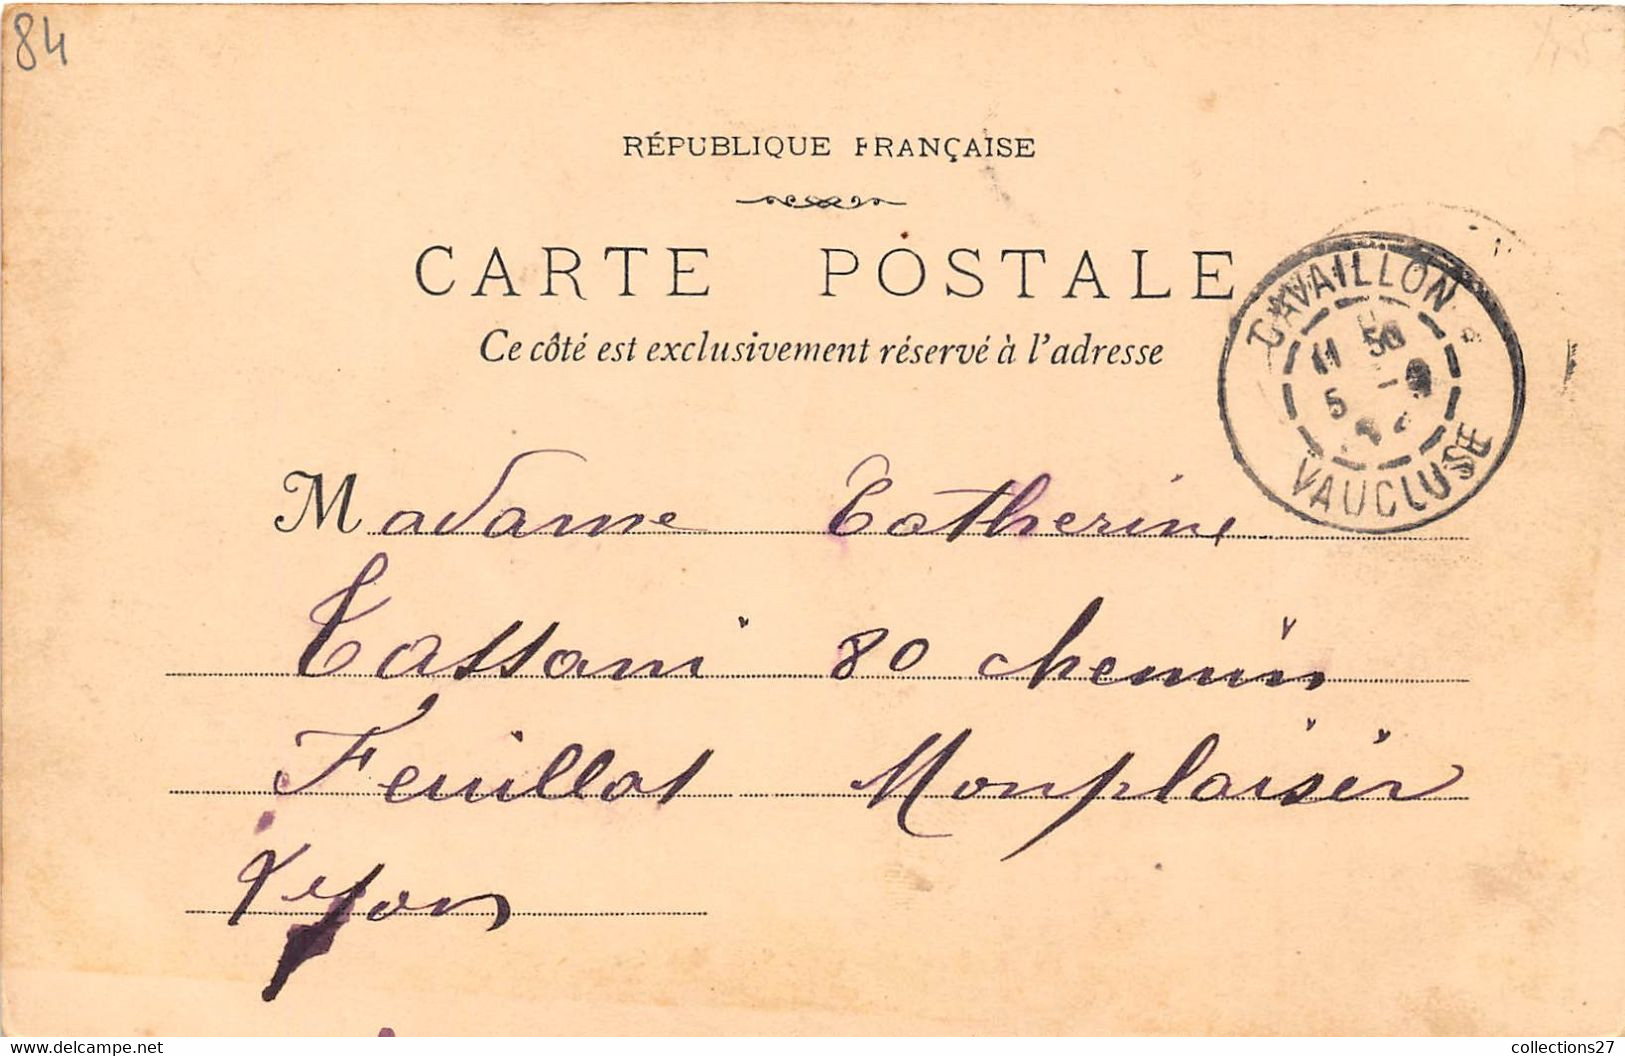 84
RÉPUBLIQUE FRANÇAISE
CARTE POSTALE
Ce côté est exclusivement réservé à l'adresse
CAVAILLON
11 50
5 - 9
VAUCLUSE
Madame Catherine
Cassani 80 chemin
Feuillat Monplaisir
Lyon
collections27